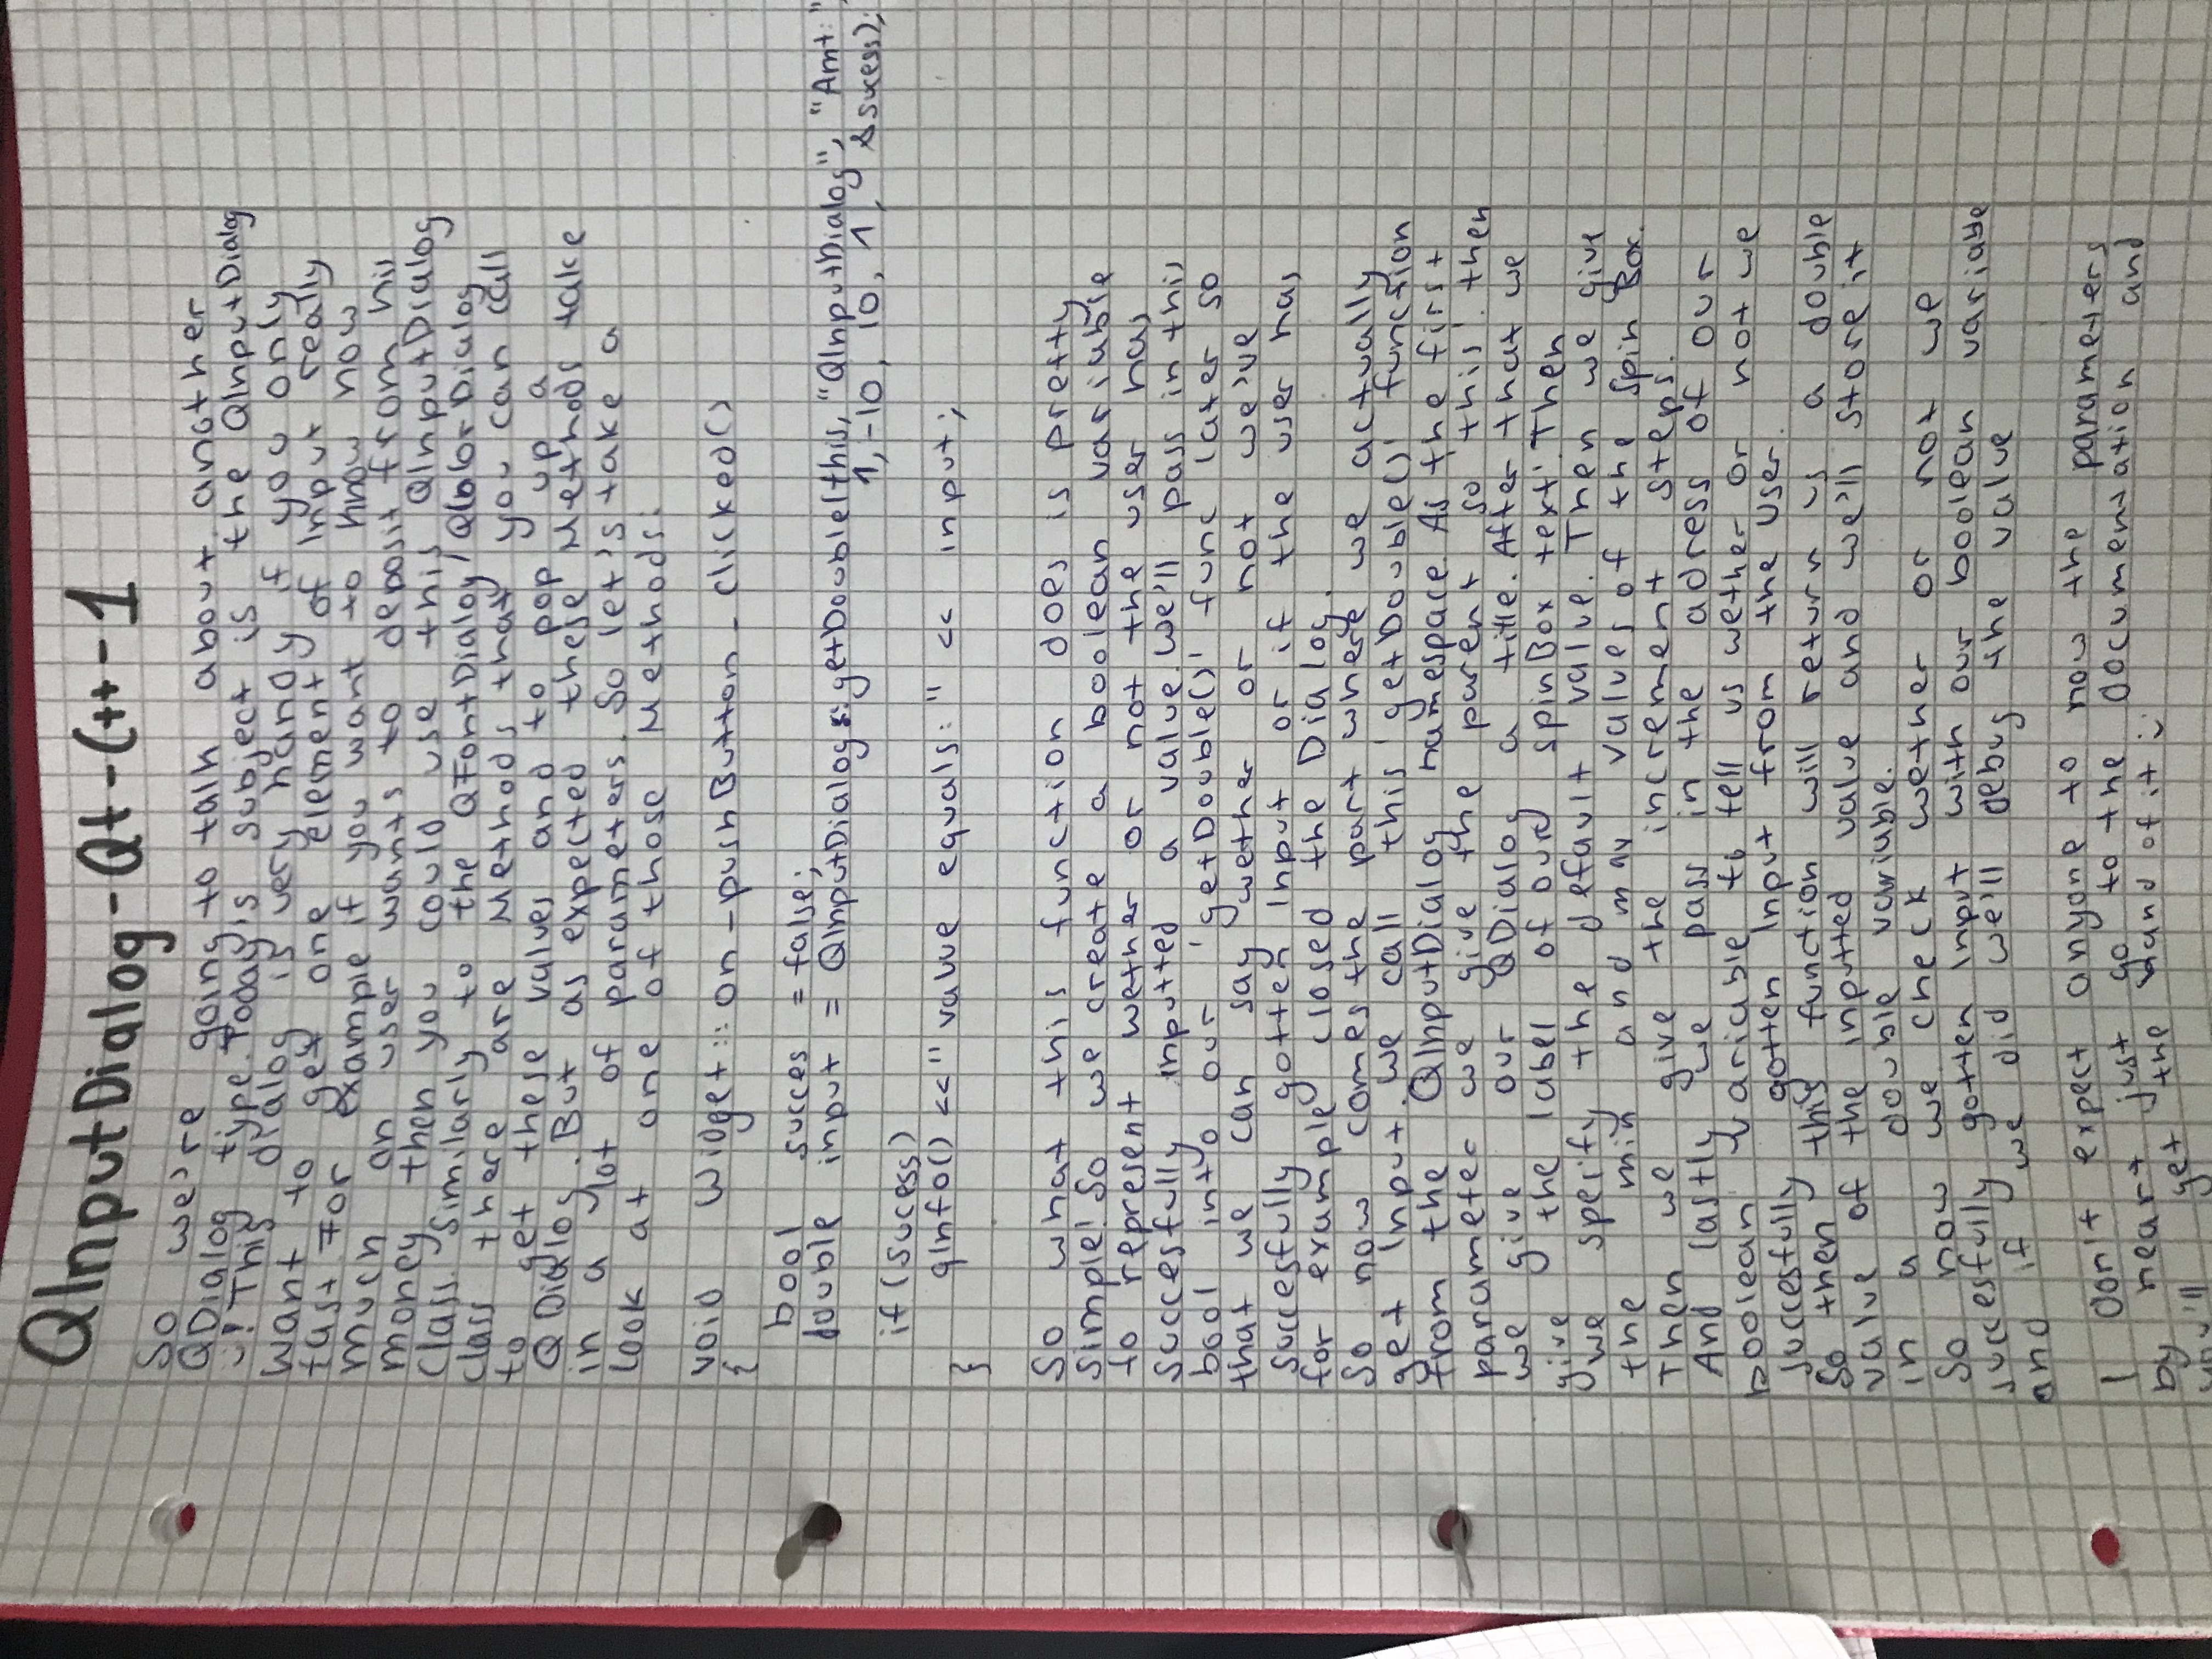 QInputDialog - Qt - C++ - 1
So we're going to talk about another
QDialog type. Today's subject is the QInputDialog
:)! This dialog is very handy if you only
want to get one element of Input really
fast For example if you want to know how
much an user wants to deposit from his
money then you could use this QInputDialog
class. Similarly to the QFontDialog/QColorDialog
class there are Methods that you can call
to get these values and to pop up a
QDialog. But as expected these Methods take
in a lot of parameters. So let's take a
look at one of those Methods:
void Widget::on_pushButton_clicked()
{
bool succes = false;
double input = QInputDialog::getDouble(this, "QInputDialog", "Amt:",
1, -10, 10, 1, &sucess);
if (sucess)
qInfo() << "value equals: " << input;
}
So what this function does is pretty
simple! So we create a boolean variable
to represent wether or not the user has
succesfully inputted a value. We'll pass in this
bool into our 'getDouble()' func later so
that we can say wether or not we've
succesfully gotten Input or if the user has
for example closed the Dialog.
So now comes the part where we actually
get Input. We call this 'getDouble()' function
from the QInputDialog namespace. As the first
parameter we give the parent so 'this'. then
we give our QDialog a title. After that we
give the label of our spinBox 'text'. Then
we specify the default value. Then we give
the min and max values of the spin Box.
Then we give the increment steps.
And lastly we pass in the adress of our
boolean variable to tell us wether or not we
succesfully gotten Input from the User.
So then this function will return us a double
value of the inputted value and we'll store it
in a double variable.
So now we check wether or not we
succesfully gotten Input with our boolean variable
and if we did we'll debug the value
I don't expect anyone to now the parameters
by heart just go to the documentation and
you'll get the hand of it :)